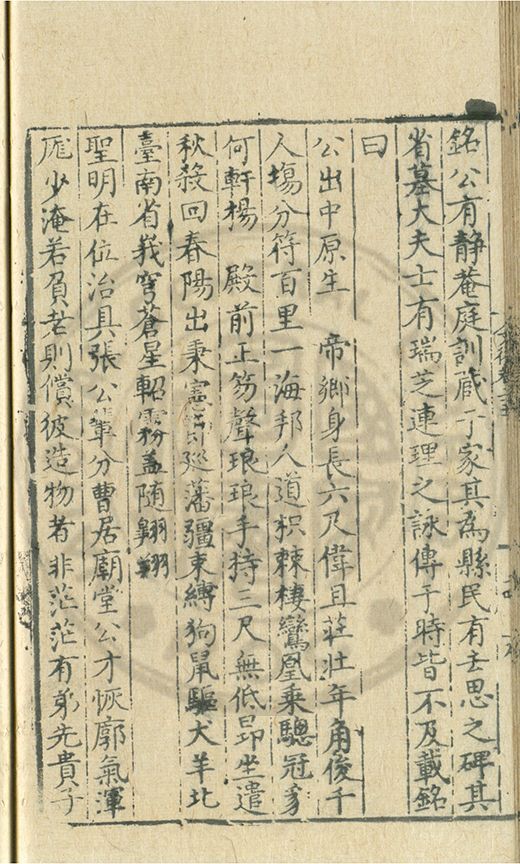 銘公有靜菴庭訓藏于家其為縣民有去思之碑其
省墓大夫士有瑞芝連理之詠傳于時皆不及載銘
曰
公出中原生　帝鄉身長六尺偉且莊壯年角俊千
人塲分符百里一海邦人道枳棘棲鸞凰乗驄冠豸
何軒楊　殿前正笏聲琅琅手持三尺無低昻坐遣
秋殺回春陽出秉憲節巡藩疆束縛狗鼠驅犬羊北
臺南省莪穹蒼星軺霧盖随翱翔
聖明在位治具張公軰分曹居廟堂公才恢廓氣渾
厖少淹若負老則償彼造物者非茫茫有弟先貴子